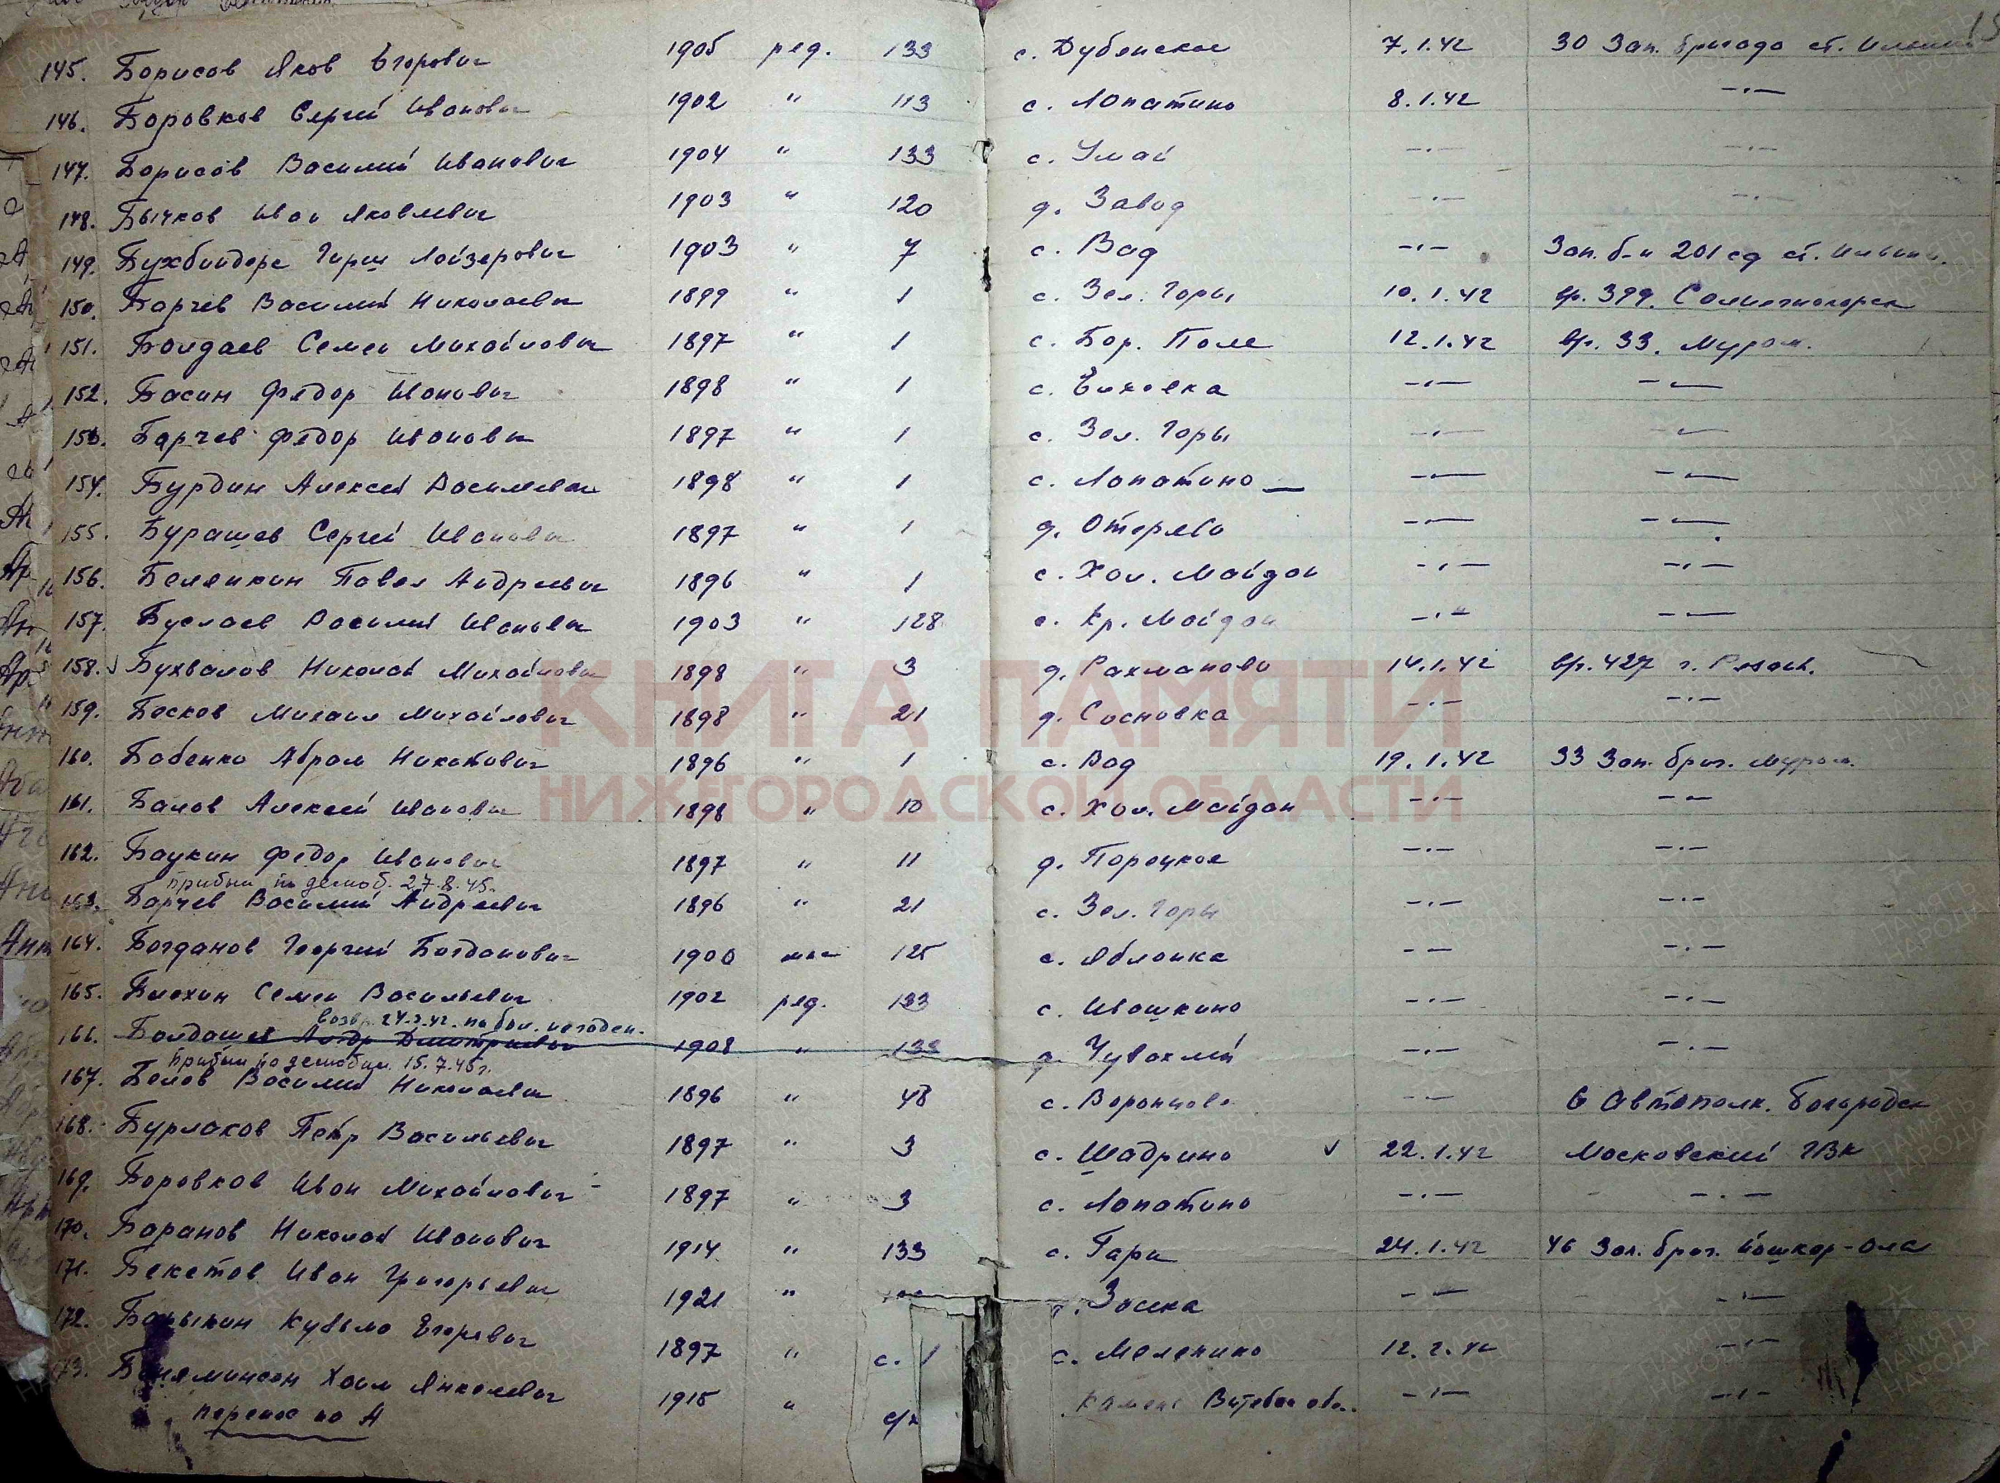 145. Борисов Яков Егорович 1905 ряд. 133 с. Дубенское 7.1.42 30 Зап. бригада ст. Ильино
146. Боровков Сергей Иванович 1902 " 113 с. Лопатино 8.1.42 -"-
147. Борисов Василий Иванович 1904 " 133 с. Умай -"- -"-
148. Бычков Иван Яковлевич 1903 " 120 д. Завод -"- -"-
149. Бухбиндер Герш Лойзерович 1903 " 7 с. Вад -"- Зап. б-н 201 сд ст. Ильино
150. Барчев Василий Николаевич 1899 " 1 с. Зел. Горы 10.1.42 вр. 399. Солнечногорск
151. Болдаев Семен Михайлович 1897 " 1 с. Бор. Поле 12.1.42 вр. 33. Муром.
152. Басин Федор Иванович 1898 " 1 с. Елховка -"- -"-
153. Барчев Федор Иванович 1897 " 1 с. Зел. Горы -"- -"-
154. Бурдин Алексей Васильевич 1898 " 1 с. Лопатино -"- -"-
155. Бурашев Сергей Иванович 1897 " 1 д. Отерево -"- -"-
156. Беляйкин Павел Андреевич 1896 " 1 с. Хол. Майдан -"- -"-
157. Буслаев Василий Иванович 1903 " 128 с. Кр. Майдан -"- -"-
158. Бухвалов Николай Михайлович 1898 " 3 д. Рахманово 14.1.42 вр. 427 г. Рязань.
159. Босков Михаил Михайлович 1898 " 21 д. Сосновка -"- -"-
160. Бабенко Абрам 1896 " 1 с. Вад 19.1.42 33 Зап. бриг. Муром.
161. Балов Алексей Иванович 1898 " 10 с. Хол. Майдан -"- -"-
162. Баукин Федор Иванович 1897 " 11 д. Порецкое -"- -"-
прибыл по демоб. 27.8.45г.
163. Барчев Василий Андреевич 1896 " 21 с. Зел. Горы -"- -"-
164. Богданов Георгий Богданович 1900 125 с. Яблонка -"- -"-
165. Блохин Семен Васильевич 1902 ряд. 133 с. Ивашкино -"- -"-
возвр. 24.2.42. по бол. негоден.
166. Болдашев Андр Дмитриевич 1908 " 133 д. Чувахлей -"- -"-
прибыл по демобил. 15.7.45г.
167. Белов Василий Николаевич 1896 " 48 с. Воронцово -"- 6 Автополк. Богородск
168. Бурлаков Петр Васильевич 1897 " 3 с. Шадрино 22.1.42 Московский ГВК
169. Боровков Иван Михайлович 1897 " 3 с. Лопатино -"- -"-
170. Баранов Николай Иванович 1914 " 133 с. Гари 24.1.42 46 Зап. бриг. Йошкар-Ола
171. Бекетов Иван Григорьевич 1921 " Засека -"- -"-
172. Барыкин Кузьма Егорович 1897 " с. 1 с. Меленино 12.2.42 -"-
173. Бениаминсон Хаим Янкелевич 1915 " с/к Камень Витебск обл. -"- -"-
перенос на А
КНИГА ПАМЯТИ
НИЖЕГОРОДСКОЙ ОБЛАСТИ
ПАМЯТЬ НАРОДА